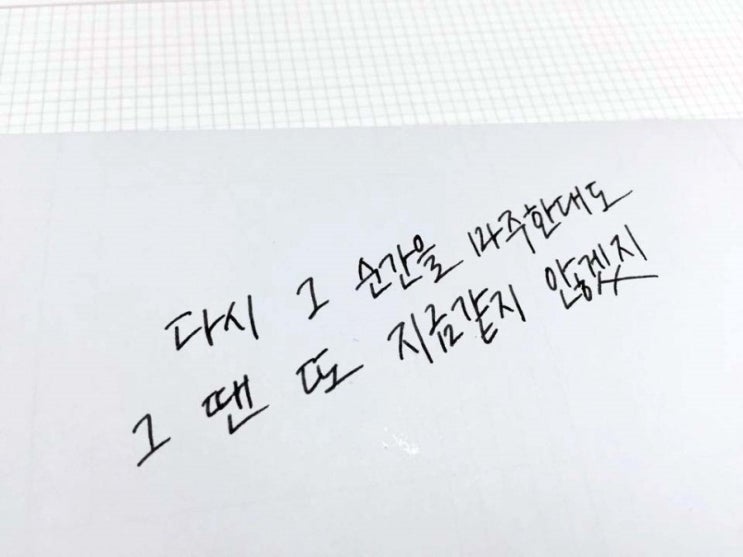 다시 그 순간을 마주한대도
그 땐 또 지금같지 않겠지